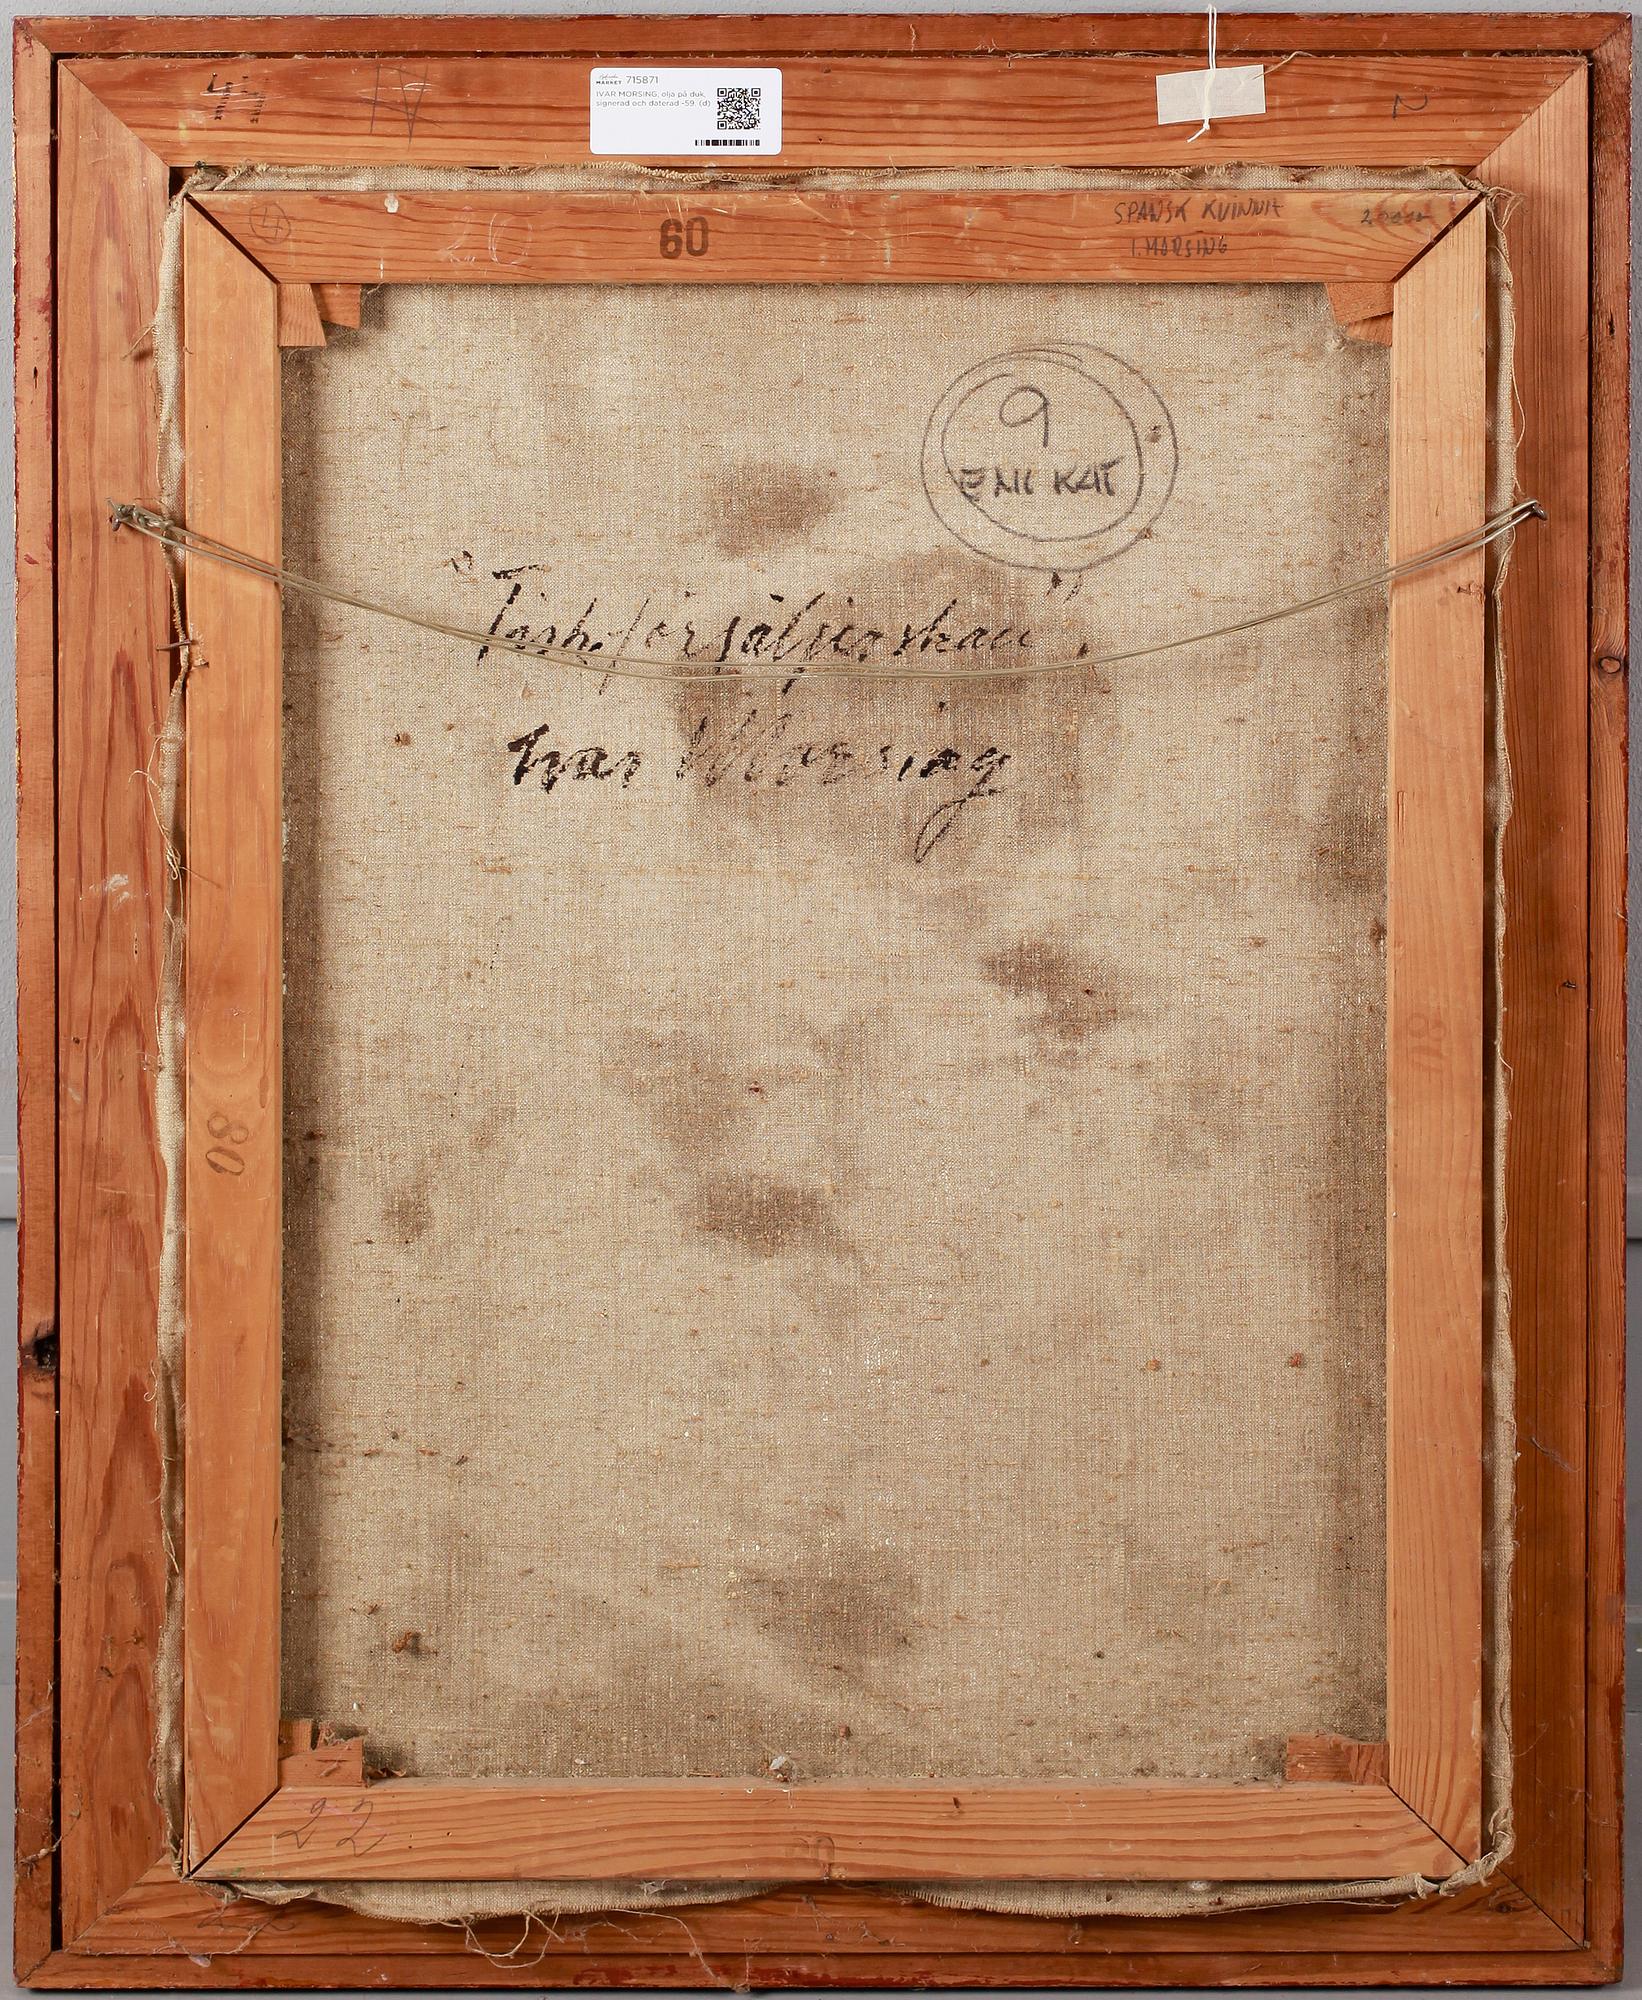 MARKET 715871
IVAR MORSING, olja på duk,
signerad och daterad -59. (d)
IV
2
4
20
60
SPANSK KVINNA
I. MORSING
9
ENL KAT
"Fiskförsäljerskan"
Ivar Morsing
80
80
22
60